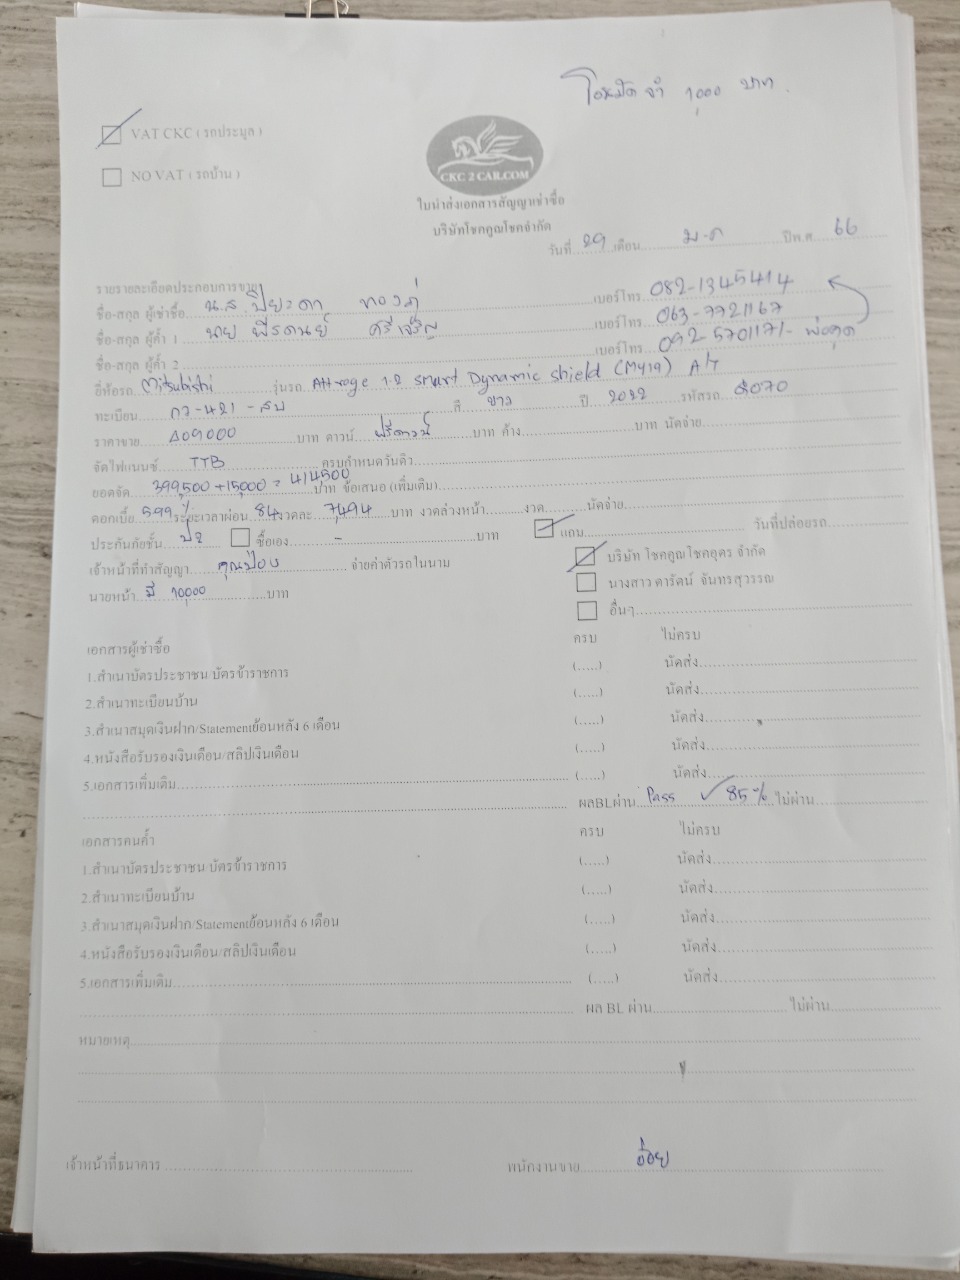 โอนมัดจำ 1000 บาท.
VAT CKC ( รถประมูล )
NO VAT ( รถบ้าน )
CKC 2 CAR.COM
ใบนำส่งเอกสารสัญญาเช่าซื้อ
บริษัทโชคคูณโชคจำกัด
วันที่ 29 เดือน ม.ค ปีพ.ศ. 66
รายรายละเอียดประกอบการขาย
ชื่อ-สกุล ผู้เช่าซื้อ น.ส. ปิยะดา ทองภู่ เบอร์โทร 082-1345414
ชื่อ-สกุล ผู้ค้ำ 1 นาย พีรดนย์ ศรีเจริญ เบอร์โทร 063-7721167
ชื่อ-สกุล ผู้ค้ำ 2 เบอร์โทร 092-5701171-
ยี่ห้อรถ Mitsubishi รุ่นรถ Attrage 1.2 smart Dynamic shield (MY19) A/T
ทะเบียน กว-421-สบ สี ขาว ปี 2022 รหัสรถ 8070
ราคาขาย 409000 บาท ดาวน์ ฟรีดาวน์ บาท ค้าง บาท นัดจ่าย
จัดไฟแนนซ์ TTB ครบกำหนดวันคิว
ยอดจัด 399,500 +15,000 = 414,500 บาท ข้อเสนอ (เพิ่มเติม)
ดอกเบี้ย 5.99 % ระยะเวลาผ่อน 84 งวดละ 7,494 บาท งวดล่วงหน้า งวด นัดจ่าย
ประกันภัยชั้น ป2 ซื้อเอง - บาท แถม วันที่ปล่อยรถ
เจ้าหน้าที่ทำสัญญา คุณป้อง จ่ายค่าตัวรถในนาม บริษัท โชคคูณโชคอุดร จำกัด
นางสาว ดารัตน์ จันทรสุวรรณ
นายหน้า มี 10,000 บาท อื่นๆ
เอกสารผู้เช่าซื้อ ครบ ไม่ครบ
1.สำเนาบัตรประชาชน/บัตรข้าราชการ (.....) นัดส่ง
2.สำเนาทะเบียนบ้าน (.....) นัดส่ง
3.สำเนาสมุดเงินฝาก/Statementย้อนหลัง 6 เดือน (.....) นัดส่ง
4.หนังสือรับรองเงินเดือน/สลิปเงินเดือน (.....) นัดส่ง
5.เอกสารเพิ่มเติม (.....) นัดส่ง
ผลBLผ่าน Pass ✓ 85% ไม่ผ่าน
เอกสารคนค้ำ ครบ ไม่ครบ
1.สำเนาบัตรประชาชน/บัตรข้าราชการ (.....) นัดส่ง
2.สำเนาทะเบียนบ้าน (.....) นัดส่ง
3.สำเนาสมุดเงินฝาก/Statementย้อนหลัง 6 เดือน (.....) นัดส่ง
4.หนังสือรับรองเงินเดือน/สลิปเงินเดือน (.....) นัดส่ง
5.เอกสารเพิ่มเติม (.....) นัดส่ง
ผล BL ผ่าน ไม่ผ่าน
หมายเหตุ
เจ้าหน้าที่ธนาคาร พนักงานขาย อ้อย